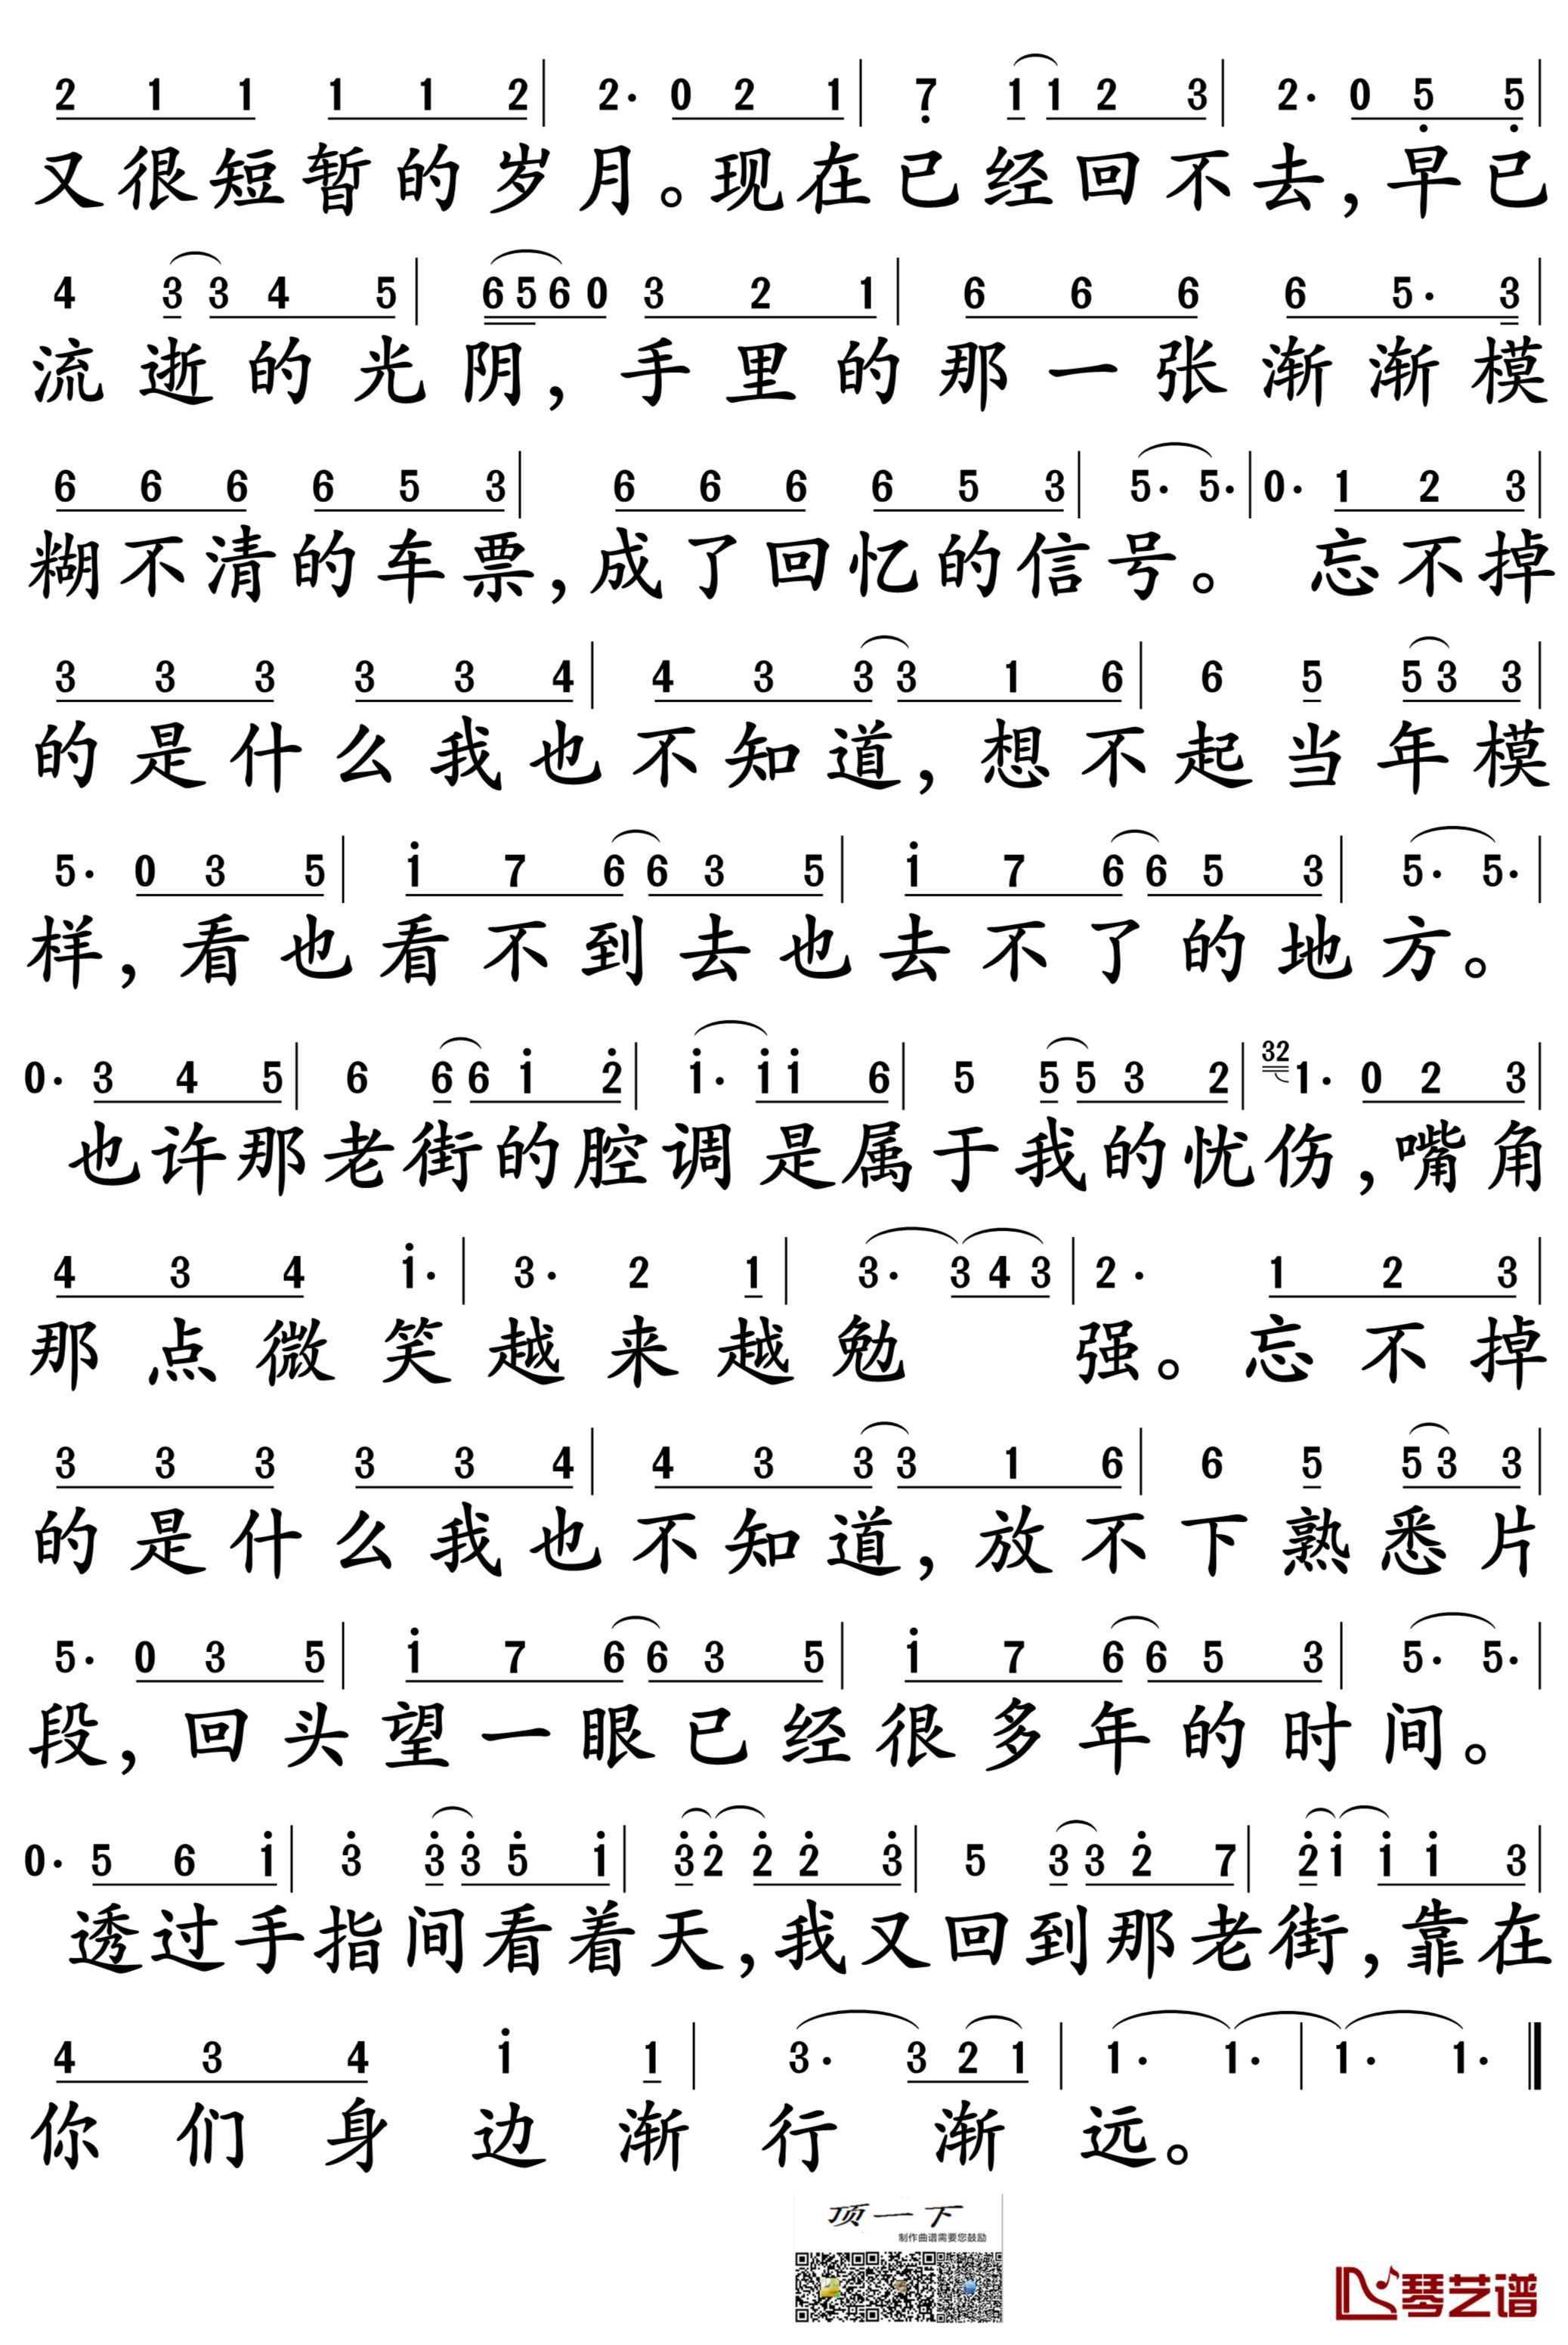 2 1 1 1 1 2 | 2· 0 2 1 | 7̣ 1 1 2 3 | 2· 0 5̣ 5̣ |
又很短暂的岁月。现在已经回不去,早已
4 3 3 4 5 | 6 5 6 0 3 2 1 | 6 6 6 6 5· 3 |
流逝的光阴,手里的那一张渐渐模
6 6 6 6 5 3 | 6 6 6 6 5 3 | 5· 5· | 0· 1 2 3 |
糊不清的车票,成了回忆的信号。 忘不掉
3 3 3 3 3 4 | 4 3 3 3 1 6 | 6 5 5 3 3 |
的是什么我也不知道,想不起当年模
5· 0 3 5 | i 7 6 6 3 5 | i 7 6 6 5 3 | 5· 5· |
样,看也看不到去也去不了的地方。
0· 3 4 5 | 6 6 6 i 2̇ | i· i i 6 | 5 5 5 3 2 | 32 1· 0 2 3 |
也许那老街的腔调是属于我的忧伤,嘴角
4 3 4 i· | 3· 2 1 | 3· 3 4 3 | 2· 1 2 3 |
那点微笑越来越勉 强。忘不掉
3 3 3 3 3 4 | 4 3 3 3 1 6 | 6 5 5 3 3 |
的是什么我也不知道,放不下熟悉片
5· 0 3 5 | i 7 6 6 3 5 | i 7 6 6 5 3 | 5· 5· |
段,回头望一眼已经很多年的时间。
0· 5 6 i | 3̇ 3̇ 3̇ 5̇ i | 3̇ 2̇ 2̇ 2̇ 3̇ | 5 3 3 2̇ 7 | 2̇ i i i 3 |
透过手指间看着天,我又回到那老街,靠在
4 3 4 i 1 | 3· 3 2 1 | 1· 1· | 1· 1· ‖
你们身边渐行渐远。
顶一下
制作曲谱需要您鼓励
琴艺谱